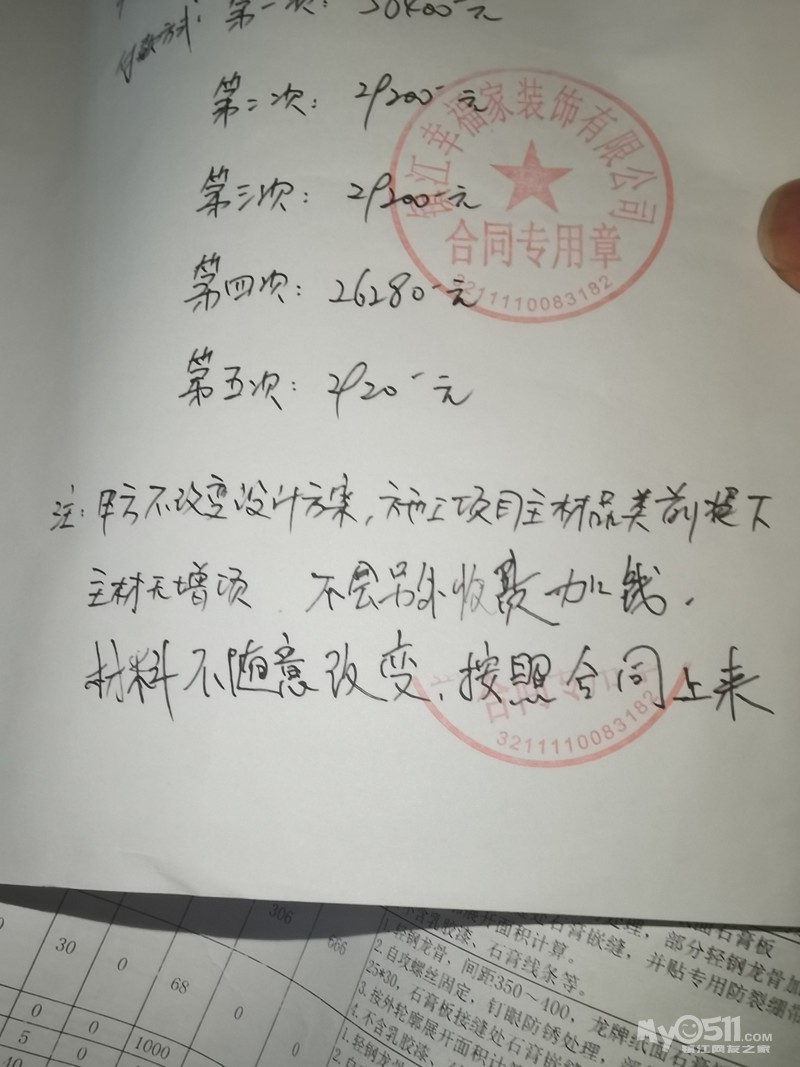 付款方式: 第一次: 50400-元
第二次: 29200-元
第三次: 29200-元
第四次: 26280-元
第五次: 2920-元
镇江幸福家装饰有限公司
合同专用章
3211110083182
注: 甲方不改变设计方案, 施工项目主材品类前提下
主材无增项 不会另外收款加钱.
材料不随意改变, 按照合同上来
合同专用章
3211110083182
306
666
30
0
68
0
0
0
0
1000
5
0
0
10
展开面积计算。
不含乳胶漆、石膏线条等。
1.轻钢龙骨, 间距350~400, 龙牌纸面石膏板
2.自攻螺丝固定, 钉眼防锈处理,
25*30, 石膏板接缝处石膏嵌缝
3.按外轮廓展开面积计算
4.不含乳胶漆、石膏
1.轻钢龙
处石膏嵌缝, 并贴专用防裂绷带
处理, 部分轻钢龙骨加
纸面石膏板
My0511.com
镇江网友之家